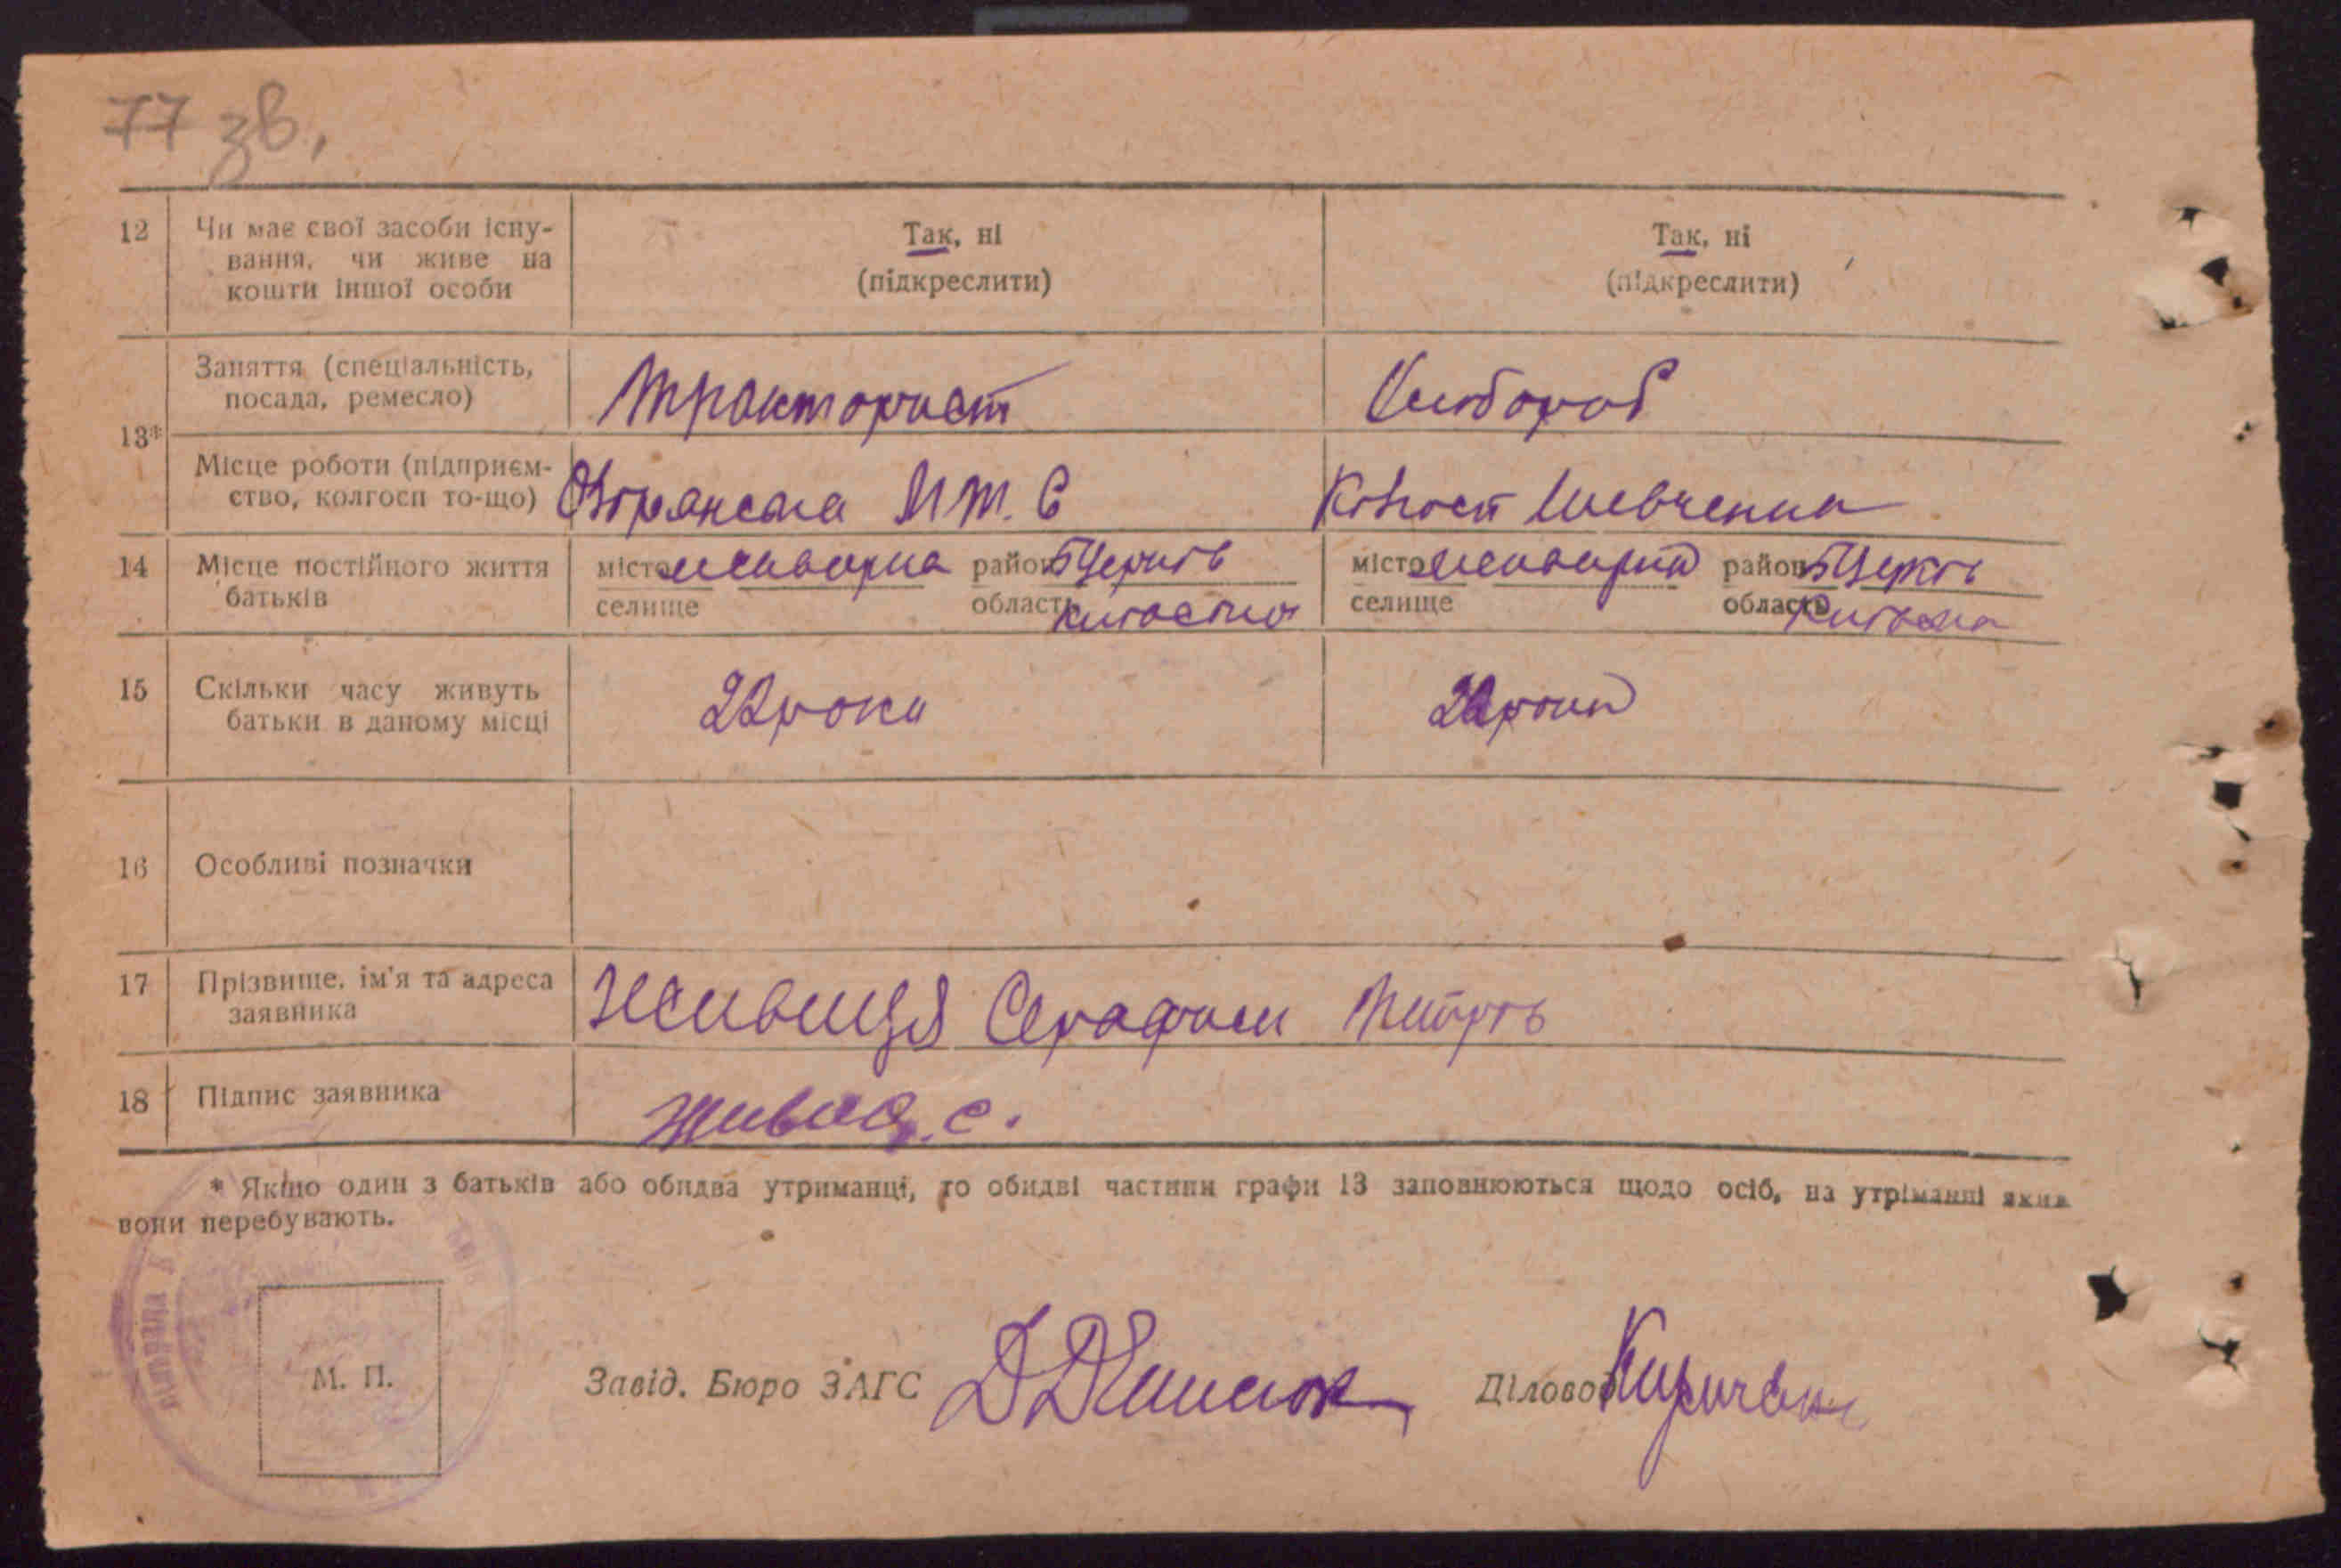 77 зв.
12 Чи має свої засоби існу-
вання, чи живе на
кошти іншої особи
Так, ні
(підкреслити)
Так, ні
(підкреслити)
13*
Заняття (спеціальність,
посада, ремесло)
тракторист
Хлібороб
Місце роботи (підприєм-
ство, колгосп то-що)
М.Т.С
Колгосп Шевченка
14 Місце постійного життя
батьків
місто район БЦеркв
селище область Київська
місто район БЦеркв
селище область Київська
15 Скільки часу живуть
батьки в даному місці
22 роки
роки
16 Особливі позначки
17 Прізвище, ім'я та адреса
заявника
Живиця Серафим
18 Підпис заявника
Живиця. с.
* Якшо один з батьків або обидва утриманці, то обидві частини графи 13 заповнюються щодо осіб, на утріманні яких
вони перебувають.
М. П.
Завід. Бюро ЗАГС
Діловод